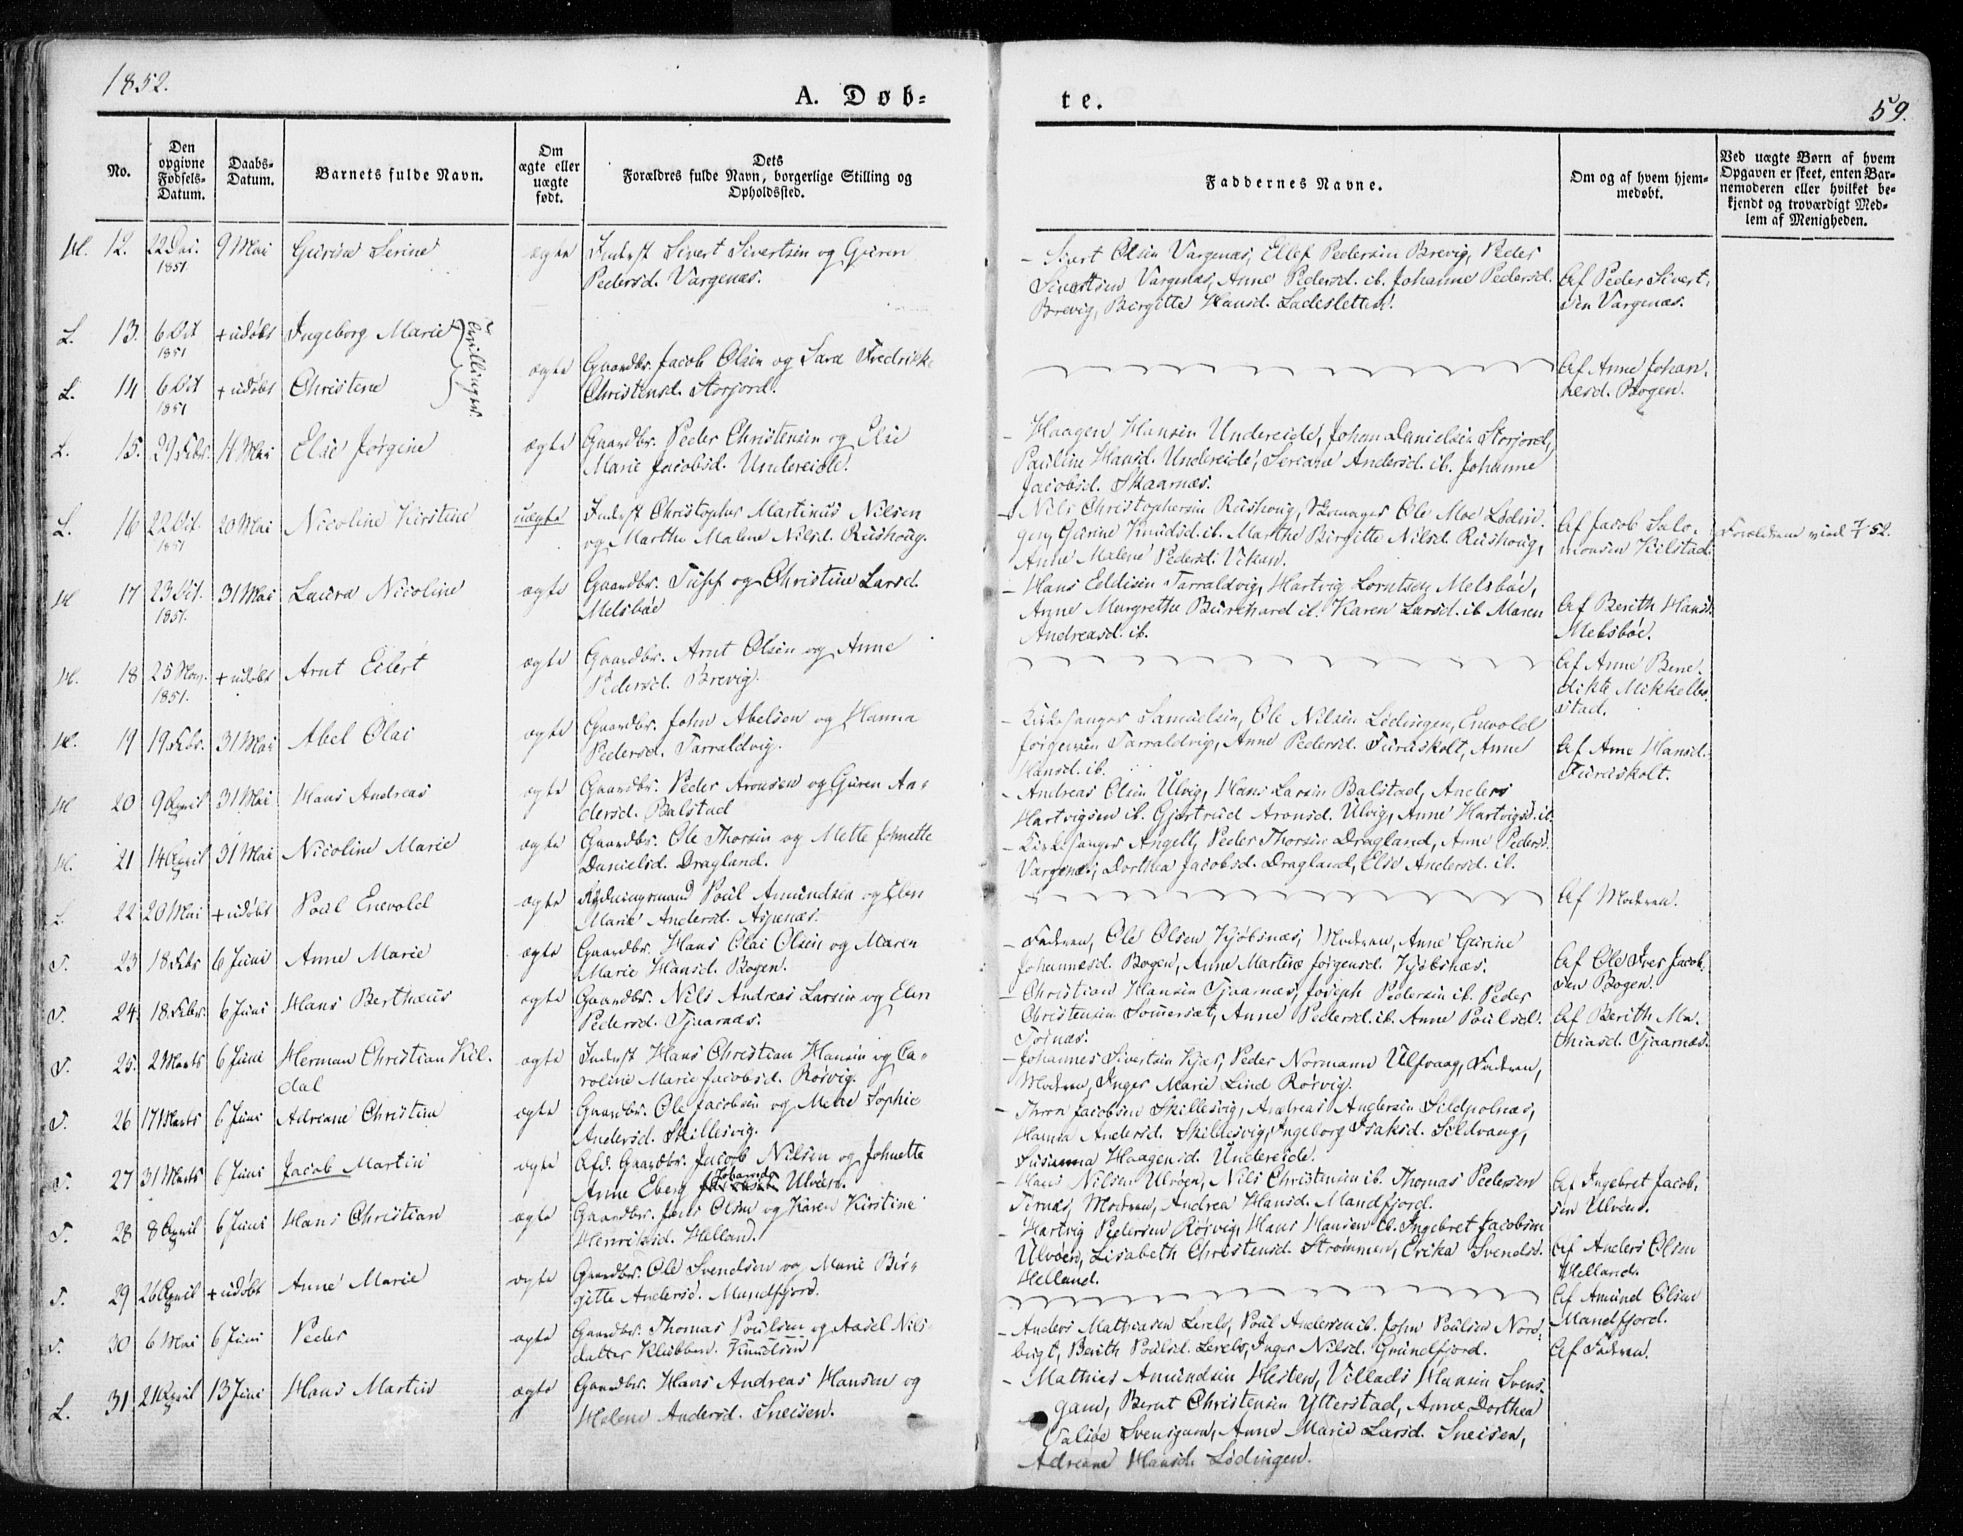 1852.
A. Døb-
te.
59.
No.
Den opgivne Fødsels-Datum.
Daabs-Datum.
Barnets fulde Navn.
Om ægte eller uægte født.
Dets Forældres fulde Navn, borgerlige Stilling og Opholdssted.
Faddernes Navne.
Om og af hvem hjem-medøbt.
Ved uægte Børn af hvem Opgaven er skeet, enten Bar-nemoderen eller hvilket be-kjendt og troværdigt Med-lem af Menigheden.
H. 12. 22 Dec. 1851 9 Mai Gurine Serine ægte Inderst Sivert Sivertsen og Guren
Pedersd. Vargenæs.
- Sivert Olsen Vargenæs, Ellef Pedersen Brevig, Peder
Sivertsen Vargenæs, Anne Pedersd. ib. Johanne Pedersd.
Brevig, Birgitte Hansd. Ladesletten.
Af Peder Sivert-
sen Vargenæs.
L. 13. 6 Oct 1851 + udøbt Ingeborg Marie
Tvillinger
L. 14 6 Oct 1851 + udøbt Christene
ægte Gaardbr. Jacob Olsen og Sara Fredrikke
Christensd. Storjord.
Af Anne Johan-
nesd. Bogen.
L. 15. 29 Febr. Mai Else Jørgine ægte Gaardbr. Peder Christensen og Else
Marie Jacobsd. Undereide.
- Haagen Hansen Undereide, Johan Danielsen Storjord,
Pauline Hansd. Undereide, Andersd. ib. Johanne
Jacobsd. Skaarnæs.
L. 16 22 Oct. 1851 20 Mai Nicoline Kirstine uægte Inderst Christopher Martinus Nilsen
og Marthe Malene Nilsd. Rushoug.
- Nils Christophersen Rushoug, Ole Moe Lødin-
gen, Gurine Knudsd. ib. Marthe Birgitte Nilsd. Rushoug,
Anne Malene Pedersd. Vikan.
Af Jacob Salo-
monsen Kilstad.
Forældrene viet 52.
H. 17 23 Oct. 1851. 31 Mai Laura Nicoline ægte Gaardbr. og Christine Larsd.
Melsbøe
- Hans Eddisen Tarraldvig, Hartvig Lorntsen Melsbøe,
Anne Margrethe Burchard ib. Karen Larsd. ib. Maren
Andreasd. ib.
Af Berith Hansd.
Melsbøe.
H. 18 25 Nov. 1851. + udøbt Arnt Eilert ægte Gaardbr. Arnt Olsen og Anne
Pedersd. Brevig.
Af Anne Bene-
dikte Mikkelbo-
stad.
H. 19 19 Febr. 31 Mai Abel Olai ægte Gaardbr. John Abelsen og Hanna
Pedersd. Tarraldvig.
- Kirkesanger Samuelsen, Ole Nilsen Lødingen, Enevold
Jørgensen Tarraldvig, Anne Pedersd. Furuskolt, Anne
Hansd. ib.
Af Anne Hansd.
Furuskolt.
H. 20 9 April 31 Mai Hans Andreas ægte Gaardbr. Peder Aronsen og Guren An-
dersd. Balstad
- Andreas Olsen Ulvig, Hans Larsen Balstad, Anders
Hartvigsen ib. Gjertrud Aronsd. Ulvig, Anne Hartvigsd. ib.
H. 21 14 April 31 Mai Nicoline Marie ægte Gaardbr. Ole Thorsen og Mette Johnette
Danielsd. Dragland.
- Kirkesanger Angell, Peder Thorsen Dragland, Anne Pedersd.
Vargenæs, Dorthea Jacobsd. Dragland, Else Andersd. ib.
L. 22 20 Mai + udøbt Poul Enevold ægte Rydningsmand Poul Amundsen og Elen
Marie Andersd. Aspenæs.
Af Moderen.
T. 23 18 Febr 6 Juni Anne Marie ægte Gaardbr. Hans Olai Olsen og Maren
Marie Hansd. Bogen.
- Faderen, Ole Olsen Kjøbsnæs, Moderen, Anne Gurine
Johannesd. Bogen, Anne Martine Jørgensd. Kjøbsnæs.
Af Ole Iver Jacob-
sen Bogen.
T. 24. 18 Febr. 6 Juni Hans Berthæus ægte Gaardbr. Nils Andreas Larsen og Elen
Pedersd. Tjaarnæs.
- Christian Hansen Tjaarnæs, Joseph Pedersen ib. Peder
Christensen Sommersæt, Anne Pedersd. ib. Anne Poulsd.
Tjernæs.
Af Berith Ma-
thiasd. Tjaarnæs.
T. 25. 2 Marts 6 Juni Herman Christian Kil-
dal ægte Inderst Hans Christian Hansen og Ca-
roline Marie Jacobsd. Rørvig.
- Johannes Sivertsen Kjær, Peder Normann Ulfvaag, Faderen,
Moderen, Inger Marie Lind Rørvig.
T. 26 17 Marts 6 Juni Adriane Christine ægte Gaardbr. Ole Jacobsen og Mette Sophie
Andersd. Skillesvig.
- Thron Jacobsen Skillesvig, Andreas Andersen Sildpolnæs,
Hanna Andersd. Skillesvig, Ingeborg Isaksd. Sildvaag,
Susanna Haagensd. Undereide.
T. 27 31 Marts 6 Juni Jacob Martin ægte Afd. Gaardbr. Jacob Nilsen og Johnette
Anne Eberg Johansd. Ulvøen.
- Hans Nilsen Ulvøen, Nils Christensen ib. Thomas Pedersen
Tirnæs, Moderen, Andrea Hansd. Mandfjord.
Af Ingebret Jacob-
sen Ulvøen.
T. 28 8 April 6 Juni Hans Christian ægte Gaardbr. Jens Olsen og Karen Kirstine
Henriksd. Helland.
- Hartvig Pedersen Rørvig, Hans Hansen ib. Ingebret Jacobsen
Ulvøen, Lisabeth Christensd. Strømmen, Erika Svendsd.
Helland.
Af Anders Olsen
Helland.
T. 29 26 April + udøbt Anne Marie ægte Gaardbr. Ole Svendsen og Marie Bir-
gitte Andersd. Mandfjord.
Af Amund Olsen
Mandfjord.
T. 30 6 Mai 6 Juni Peder ægte Gaardbr. Thomas Poulsen og Aasel Nils
datter Klubben. Knudsen
- Anders Mathiasen Lerels, Poul Andersen ib. John Poulsen Nord-
bugt, Berith Poulsd. Lerels, Inger Nilsd. Grundfjord.
Af Faderen.
L. 31 21 April 13 Juni Hans Martin ægte Gaardbr. Hans Andreas Hansen og
Helene Andersd. Sneisen.
- Mathias Amundsen Hesten, Villads Hansen Svens-
gam, Bernt Christensen Ytterstad, Anne Dorthea
Svensgam, Anne Marie Larsd. Sneisen,
Adriane Hansd. Lødingen.